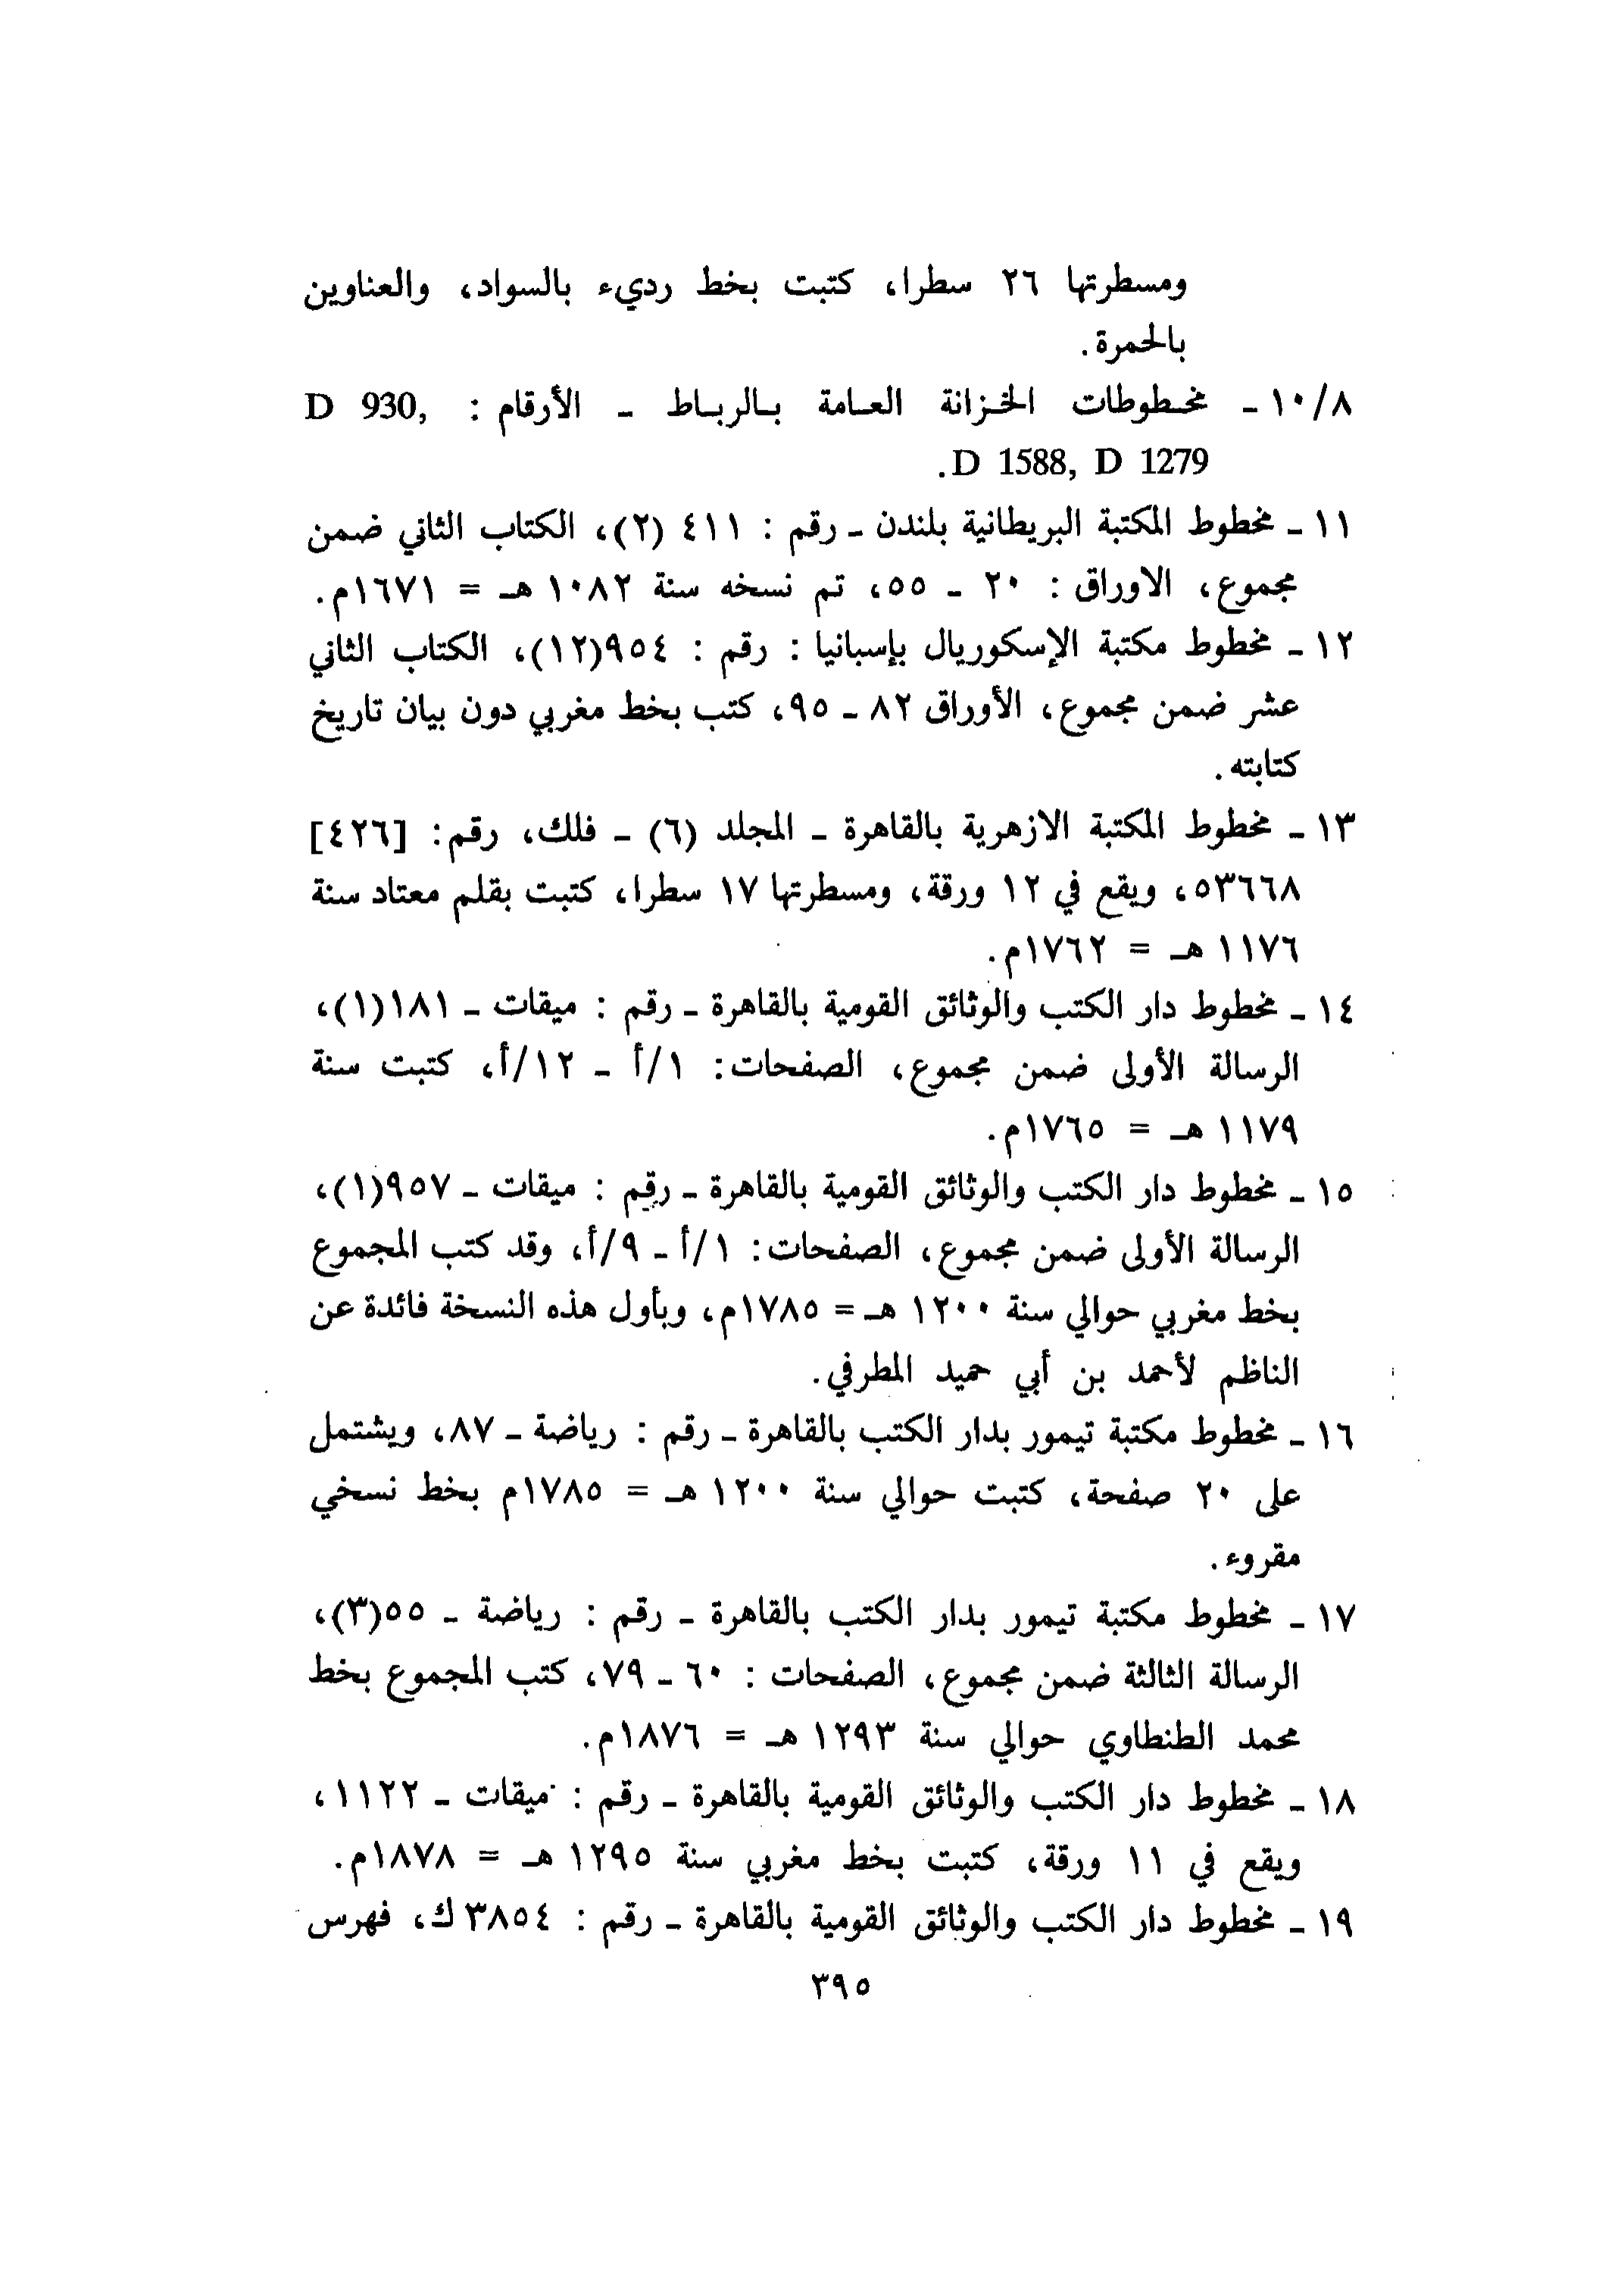 ومسطرتها ٢٦ سطرا، كتبت بخط رديء بالسواد، والعناوين
بالحمرة.
١٠/٨ - مخطوطات الخزانة العامة بالرباط - الأرقام : D 930,
D 1588, D 1279.
١١ - مخطوط المكتبة البريطانية بلندن - رقم : ٤١١ (٢)، الكتاب الثاني ضمن
مجموع، الاوراق : ٢٠ - ٥٥، تم نسخه سنة ١٠٨٢ هـ = ١٦٧١م.
١٢ - مخطوط مكتبة الإسكوريال بإسبانيا : رقم : ٩٥٤(١٢)، الكتاب الثاني
عشر ضمن مجموع، الأوراق ٨٢ - ٩٥، كتب بخط مغربي دون بيان تاريخ
كتابته.
١٣ - مخطوط المكتبة الازهرية بالقاهرة - المجلد (٦) - فلك، رقم: [٤٢٦]
٥٣٦٦٨، ويقع في ١٢ ورقة، ومسطرتها ١٧ سطرا، كتبت بقلم معتاد سنة
١١٧٦ هـ = ١٧٦٢م.
١٤ - مخطوط دار الكتب والوثائق القومية بالقاهرة - رقم : ميقات - ١٨١(١)،
الرسالة الأولى ضمن مجموع، الصفحات: ١/أ - ١٢/أ، كتبت سنة
١١٧٩ هـ = ١٧٦٥م.
١٥ - مخطوط دار الكتب والوثائق القومية بالقاهرة - رقم : ميقات - ٩٥٧(١)،
الرسالة الأولى ضمن مجموع، الصفحات: ١/أ - ٩/أ، وقد كتب المجموع
بخط مغربي حوالي سنة ١٢٠٠ هـ = ١٧٨٥م، وبأول هذه النسخة فائدة عن
الناظم لأحمد بن أبي حميد المطرفي.
١٦ - مخطوط مكتبة تيمور بدار الكتب بالقاهرة - رقم : رياضة - ٨٧، ويشتمل
على ٢٠ صفحة، كتبت حوالي سنة ١٢٠٠ هـ = ١٧٨٥م بخط نسخي
مقروء.
١٧ - مخطوط مكتبة تيمور بدار الكتب بالقاهرة - رقم : رياضة - ٥٥(٣)،
الرسالة الثالثة ضمن مجموع، الصفحات : ٦٠ - ٧٩، كتب المجموع بخط
محمد الطنطاوي حوالي سنة ١٢٩٣ هـ = ١٨٧٦م.
١٨ - مخطوط دار الكتب والوثائق القومية بالقاهرة - رقم : ميقات - ١١٢٢،
ويقع في ١١ ورقة، كتبت بخط مغربي سنة ١٢٩٥ هـ = ١٨٧٨م.
١٩ - مخطوط دار الكتب والوثائق القومية بالقاهرة - رقم : ٣٨٥٤ك، فهرس
٣٩٥